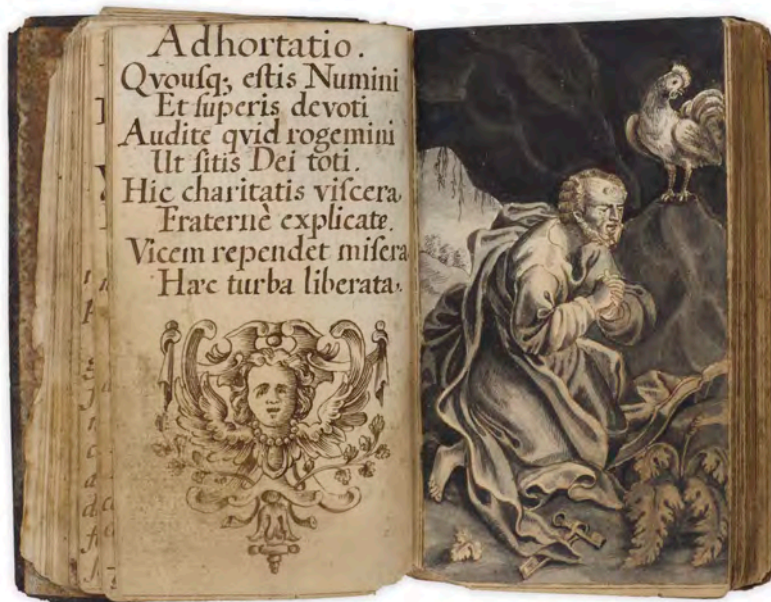 Adhortatio.
Qvousq;, estis Numini
Et superis devoti
Audite qvid rogemini
Ut sitis Dei toti.
Hic charitatis viscera,
Fraternè explicate.
Vicem rependet misera
Hæc turba liberata.